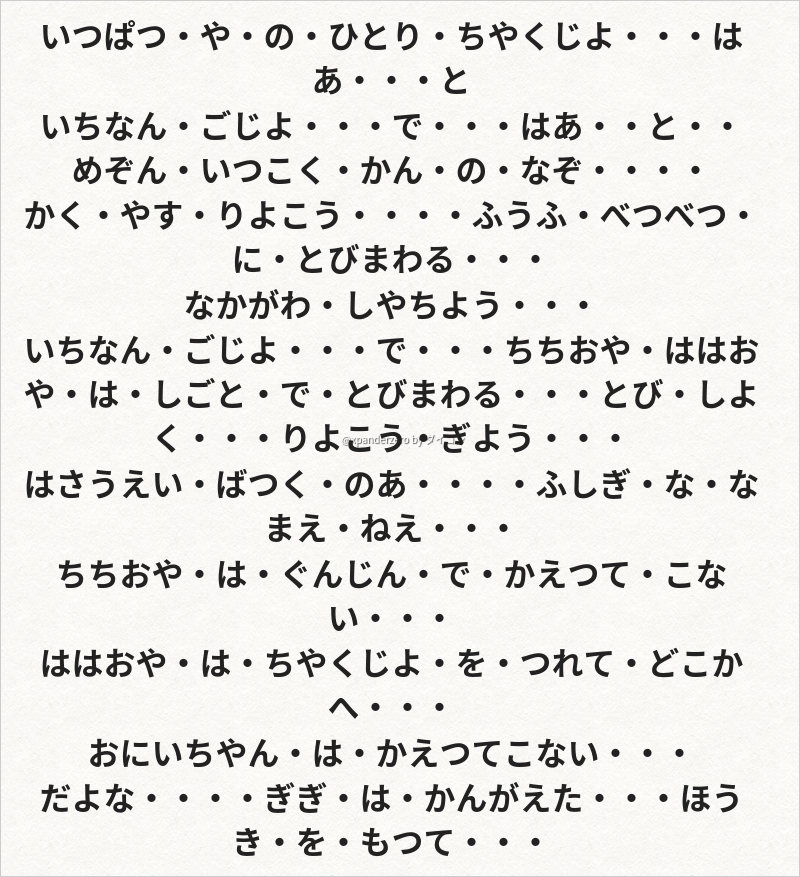 いつぱつ・や・の・ひとり・ちやくじよ・・・は
あ・・・と
いちなん・ごじよ・・・で・・・はあ・・と・・
めぞん・いつこく・かん・の・なぞ・・・・
かく・やす・りよこう・・・・ふうふ・べつべつ・
に・とびまわる・・・
なかがわ・しやちよう・・・
いちなん・ごじよ・・・で・・・ちちおや・ははお
や・は・しごと・で・とびまわる・・・とび・しよ
く・・・りよこう・ぎよう・・・
はさうえい・ばつく・のあ・・・・ふしぎ・な・な
まえ・ねえ・・・
ちちおや・は・ぐんじん・で・かえつて・こな
い・・・
ははおや・は・ちやくじよ・を・つれて・どこか
へ・・・
おにいちやん・は・かえつてこない・・・
だよな・・・・ぎぎ・は・かんがえた・・・ほう
き・を・もつて・・・